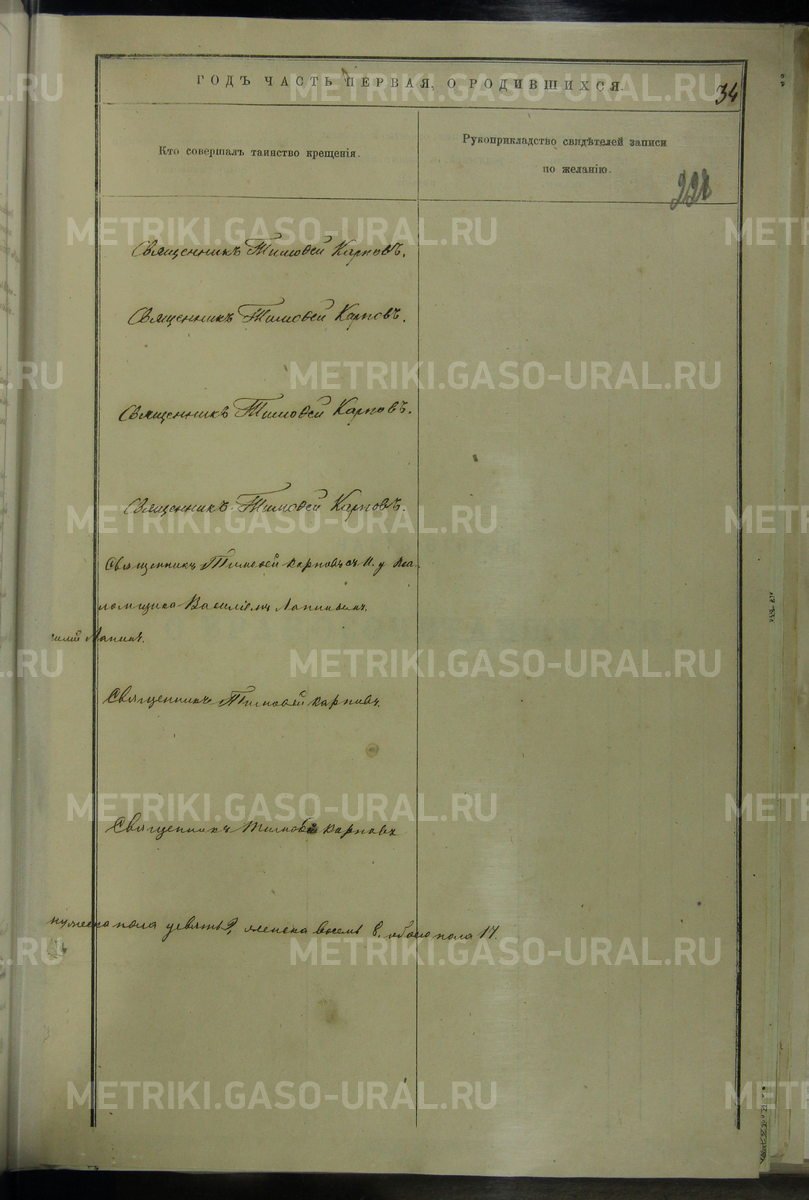 ГОДЪ ЧАСТЬ ПЕРВАЯ, О РОДИВШИХСЯ.
34
Кто совершалъ таинство крещенія.
Рукоприкладство свидѣтелей записи
по желанію.
Священникъ Тимоѳей Карповъ.
Священникъ Тимоѳей Карповъ.
Священникъ Тимоѳей Карповъ.
Священникъ Тимоѳей Карповъ.
Священникъ Тимоѳей Карповъ съ И. д. Пса-
ломщика Василіемъ Лапинымъ.
силій Лапинъ.
Священникъ Тимоѳей Карповъ.
Священникъ Тимоѳей Карповъ
мужеска пола девять 9, женска восемь 8. обоего пола 17.
METRIKI.GASO-URAL.RU